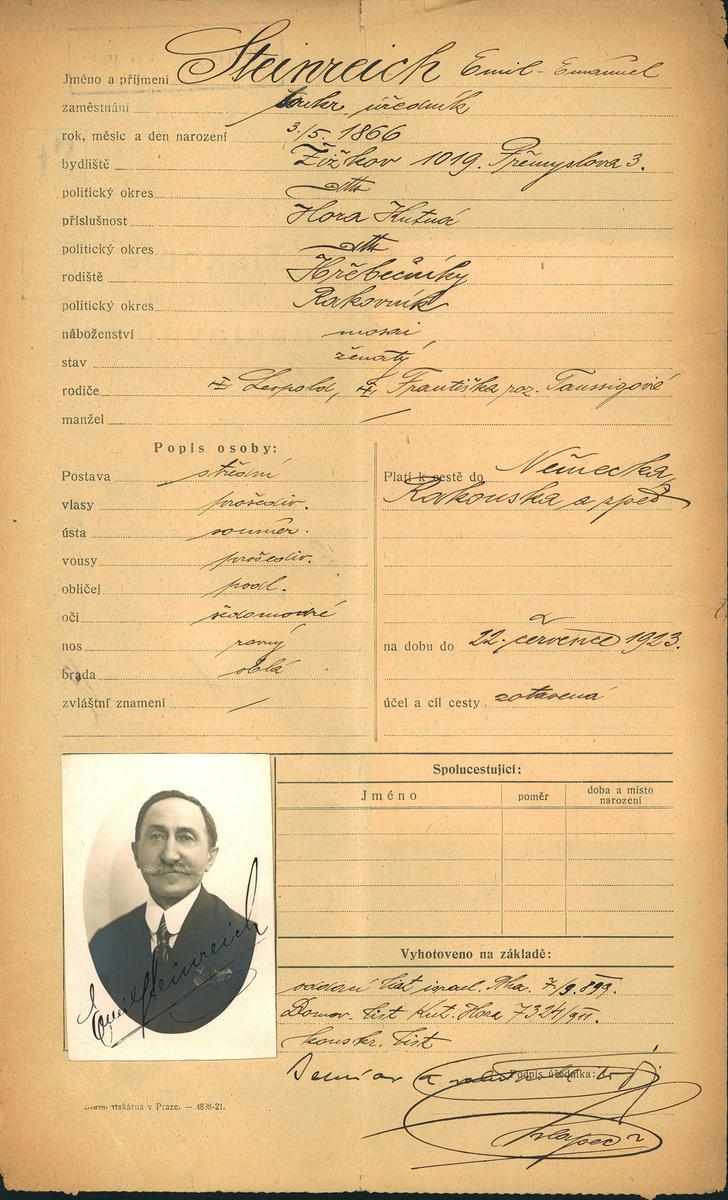 Jméno a příjmení Steinreich Emil-Emanuel
zaměstnání soukr. úředník
rok, měsíc a den narození 3./5. 1866
bydliště Žižkov 1019. Přemyslova 3.
politický okres
příslušnost Hora Kutná
politický okres
rodiště Hřebečníky
politický okres Rakovník
náboženství mosai
stav ženatý
rodiče Leopold, Františka roz. Taussigové
manžel /
Popis osoby:
Postava střední
vlasy prošediv.
ústa souměr.
vousy prošediv.
obličej podl.
oči šedomodré
nos rovný
brada oblá
zvláštní znamení /
Platí k cestě do Německa,
Rakouska a zpět
na dobu do 22. července 1923.
účel a cíl cesty zotavená
Spolucestující:
Jméno poměr doba a místo narození
Emil Steinreich
Vyhotoveno na základě:
oddací list israel. 7/9. 899.
Domov. list Kut. Hora 7324/911.
konskr. list
Podpis úředníka:
tiskárna v Praze. — 4878-21.